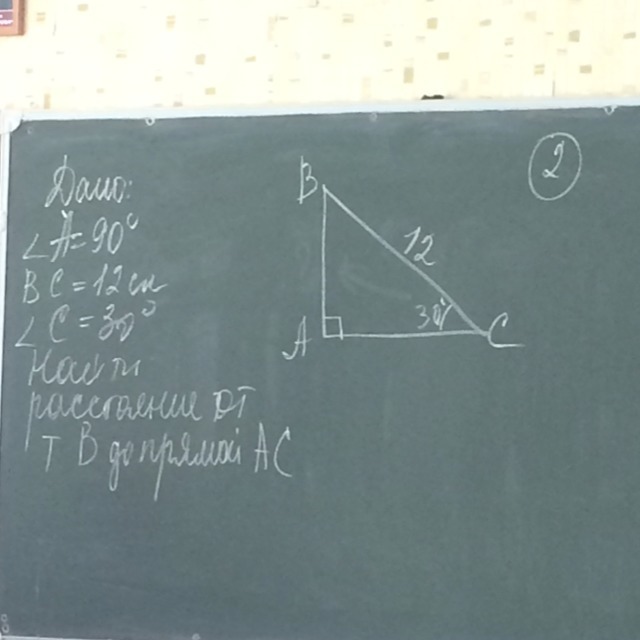 Дано:
∠A=90°
BC=12см
∠C=30°
Найти
расстояние от
т В до прямой АС
B
12
30°
A
C
2